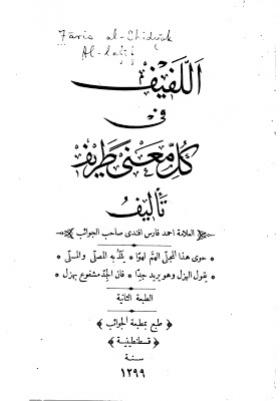 Fāris al-Shidyāk
Al-lafīf
اللفيف
في
كل معنى طريف
تأليف
العلامة احمد فارس افندي صاحب الجوائب
حوى هذا المجلى الهم لهوا * يلذ به المصلى والمسلى
يقول الهزل وهو يريد جدا * فان الجد مشفوع بهزل
الطبعة الثانية
طبع بمطبعة الجوائب
قسطنطينية
سنة
١٢٩٩